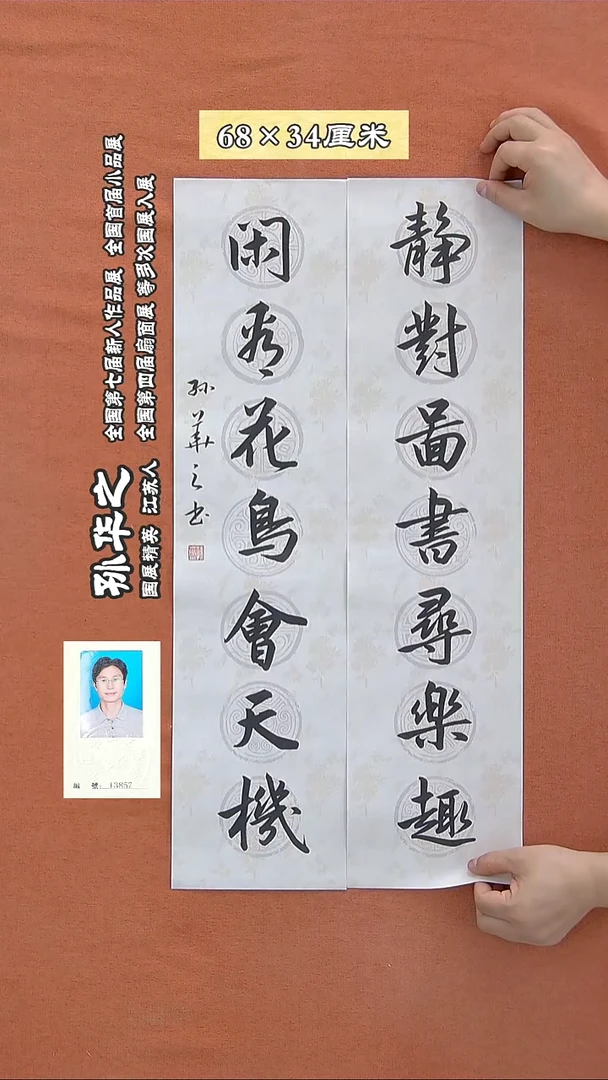 68×34厘米
靜對啚書尋樂趣
闲看花鳥會天機
孙華之书
全国第七届新人作品展 全国首届小品展
全国第四届扇面展 等多次国展入展
孙华之
国展精英 江苏人
編 號：13857